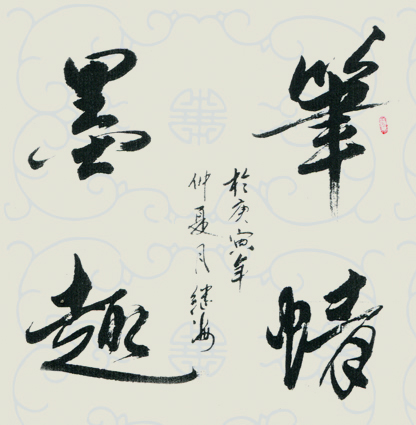 筆情
墨趣
於庚寅年
仲夏月继海